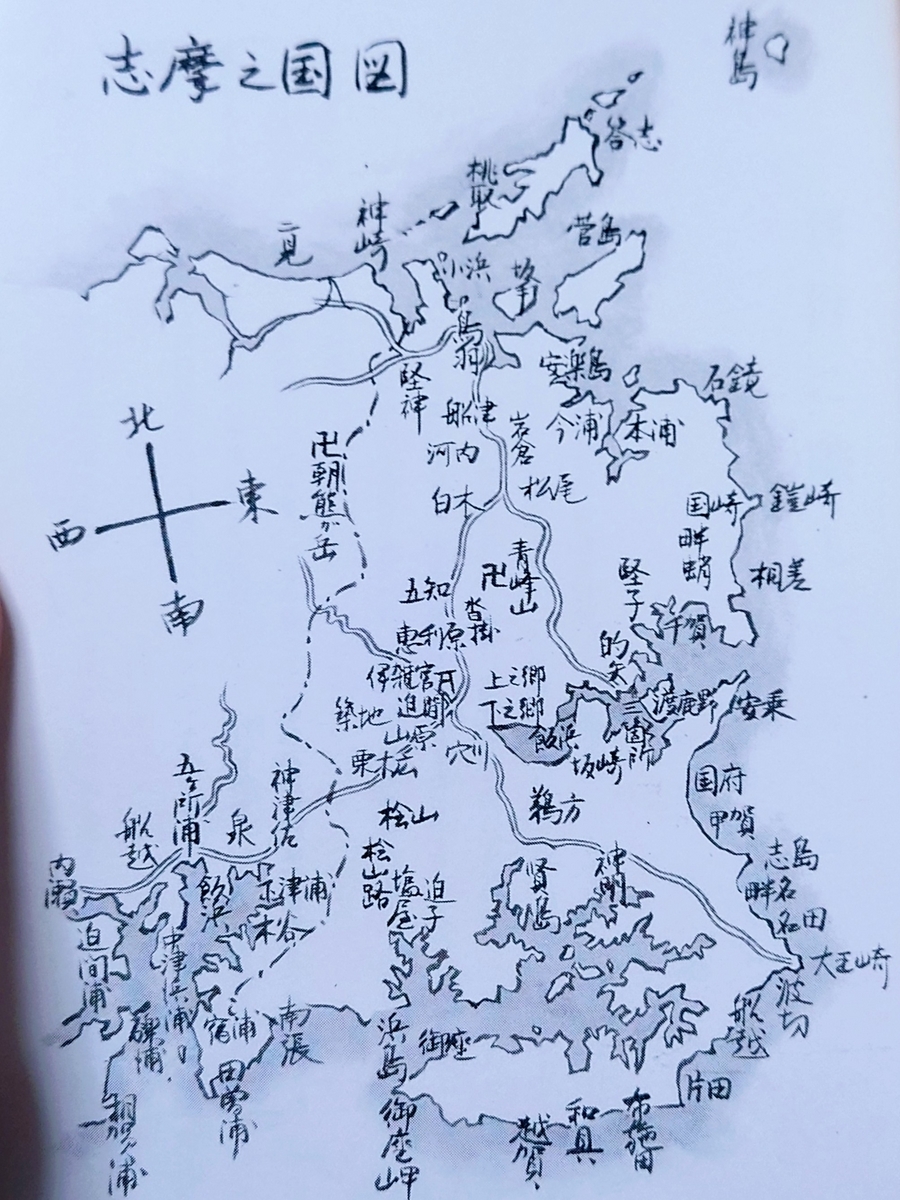 志摩之国図
神島
答志
桃取
菅島
神崎
二見
小浜
坂手
鳥羽
安楽島
石鏡
堅神
船津
岩倉
今浦
本浦
河内
北
東
西
南
卍朝熊ヶ岳
白木
松尾
国崎
鎧崎
畔蛸
相差
青峰山
卍
堅子
五知
沓掛
千賀
恵利原
的矢
伊雑宮
上之郷
下之郷
渡鹿野
安乗
築地
迫間
三箇所
飯浜
山原
穴川
坂崎
栗木広
国府
甲賀
五ヶ所浦
神津佐
鵜方
桧山
船越
泉
桧山路
塩屋
迫子
賢島
神明
志島
畔名
名田
内瀬
飯浜
下津浦
木谷
大王崎
迫間浦
中津浜浦
波切
船越
礫浦
宿浦
南張
浜島
御座
田曽浦
片田
相賀浦
御座岬
越賀
和具
布施田